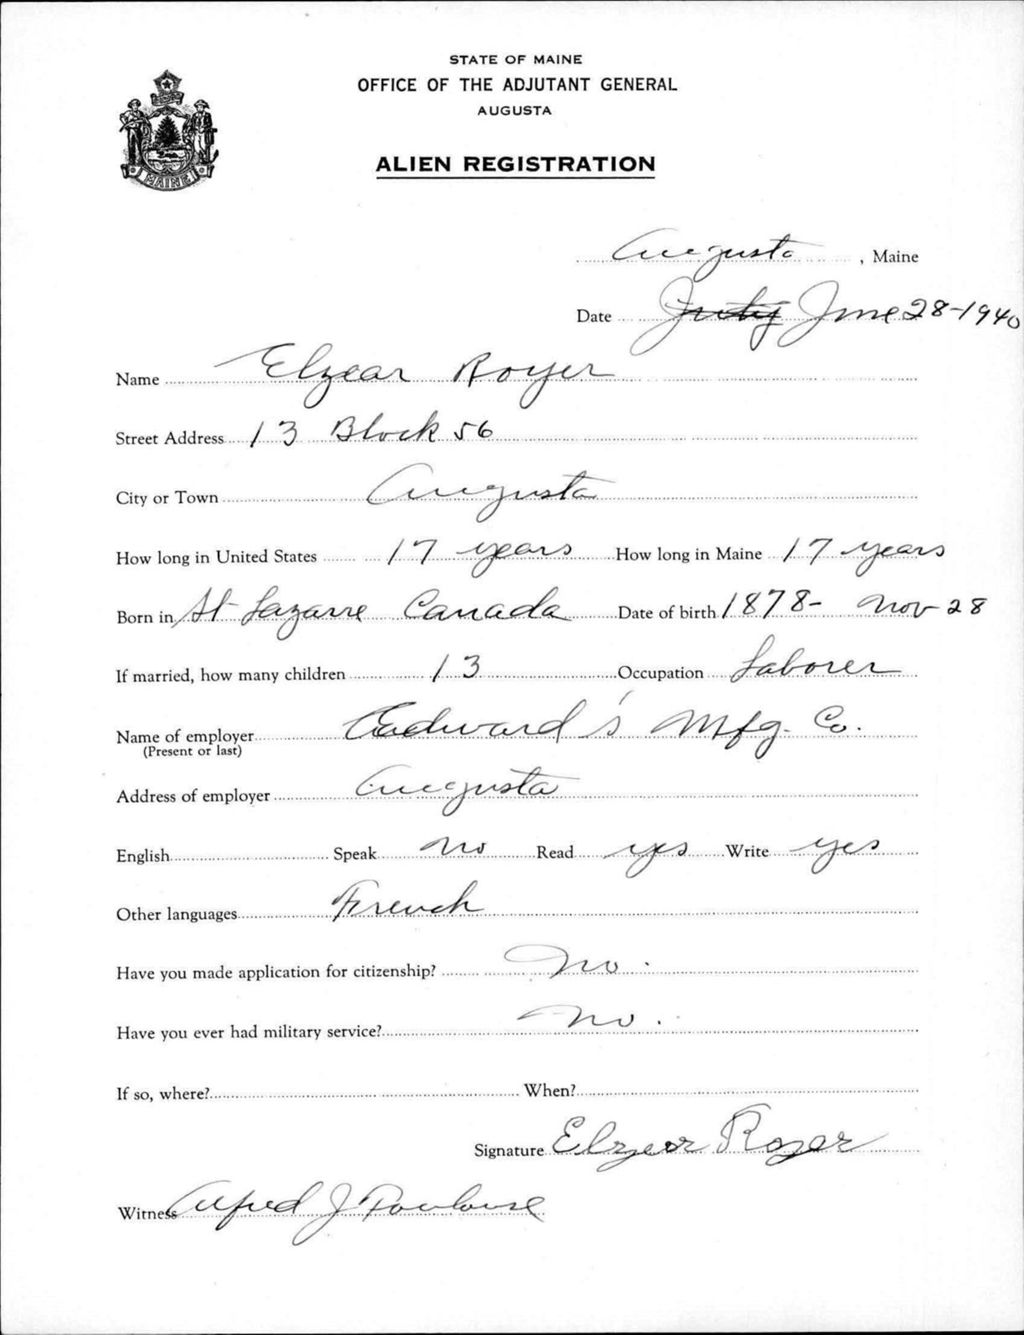 STATE OF MAINE
OFFICE OF THE ADJUTANT GENERAL
AUGUSTA
ALIEN REGISTRATION
MAINE
Augusta, Maine
Date July June 28-1940
Name Elzear Royer
Street Address 13 Block 56
City or Town Augusta
How long in United States 17 years How long in Maine 17 years
Born in St Lazarre Canada Date of birth 1878- Nov 28
If married, how many children 13 Occupation Laborer
Name of employer Edward's Mfg. Co.
(Present or last)
Address of employer Augusta
English Speak no Read yes Write yes
Other languages French
Have you made application for citizenship? No.
Have you ever had military service? No.
If so, where? When?
Signature Elzear Royer
Witness Alfred J